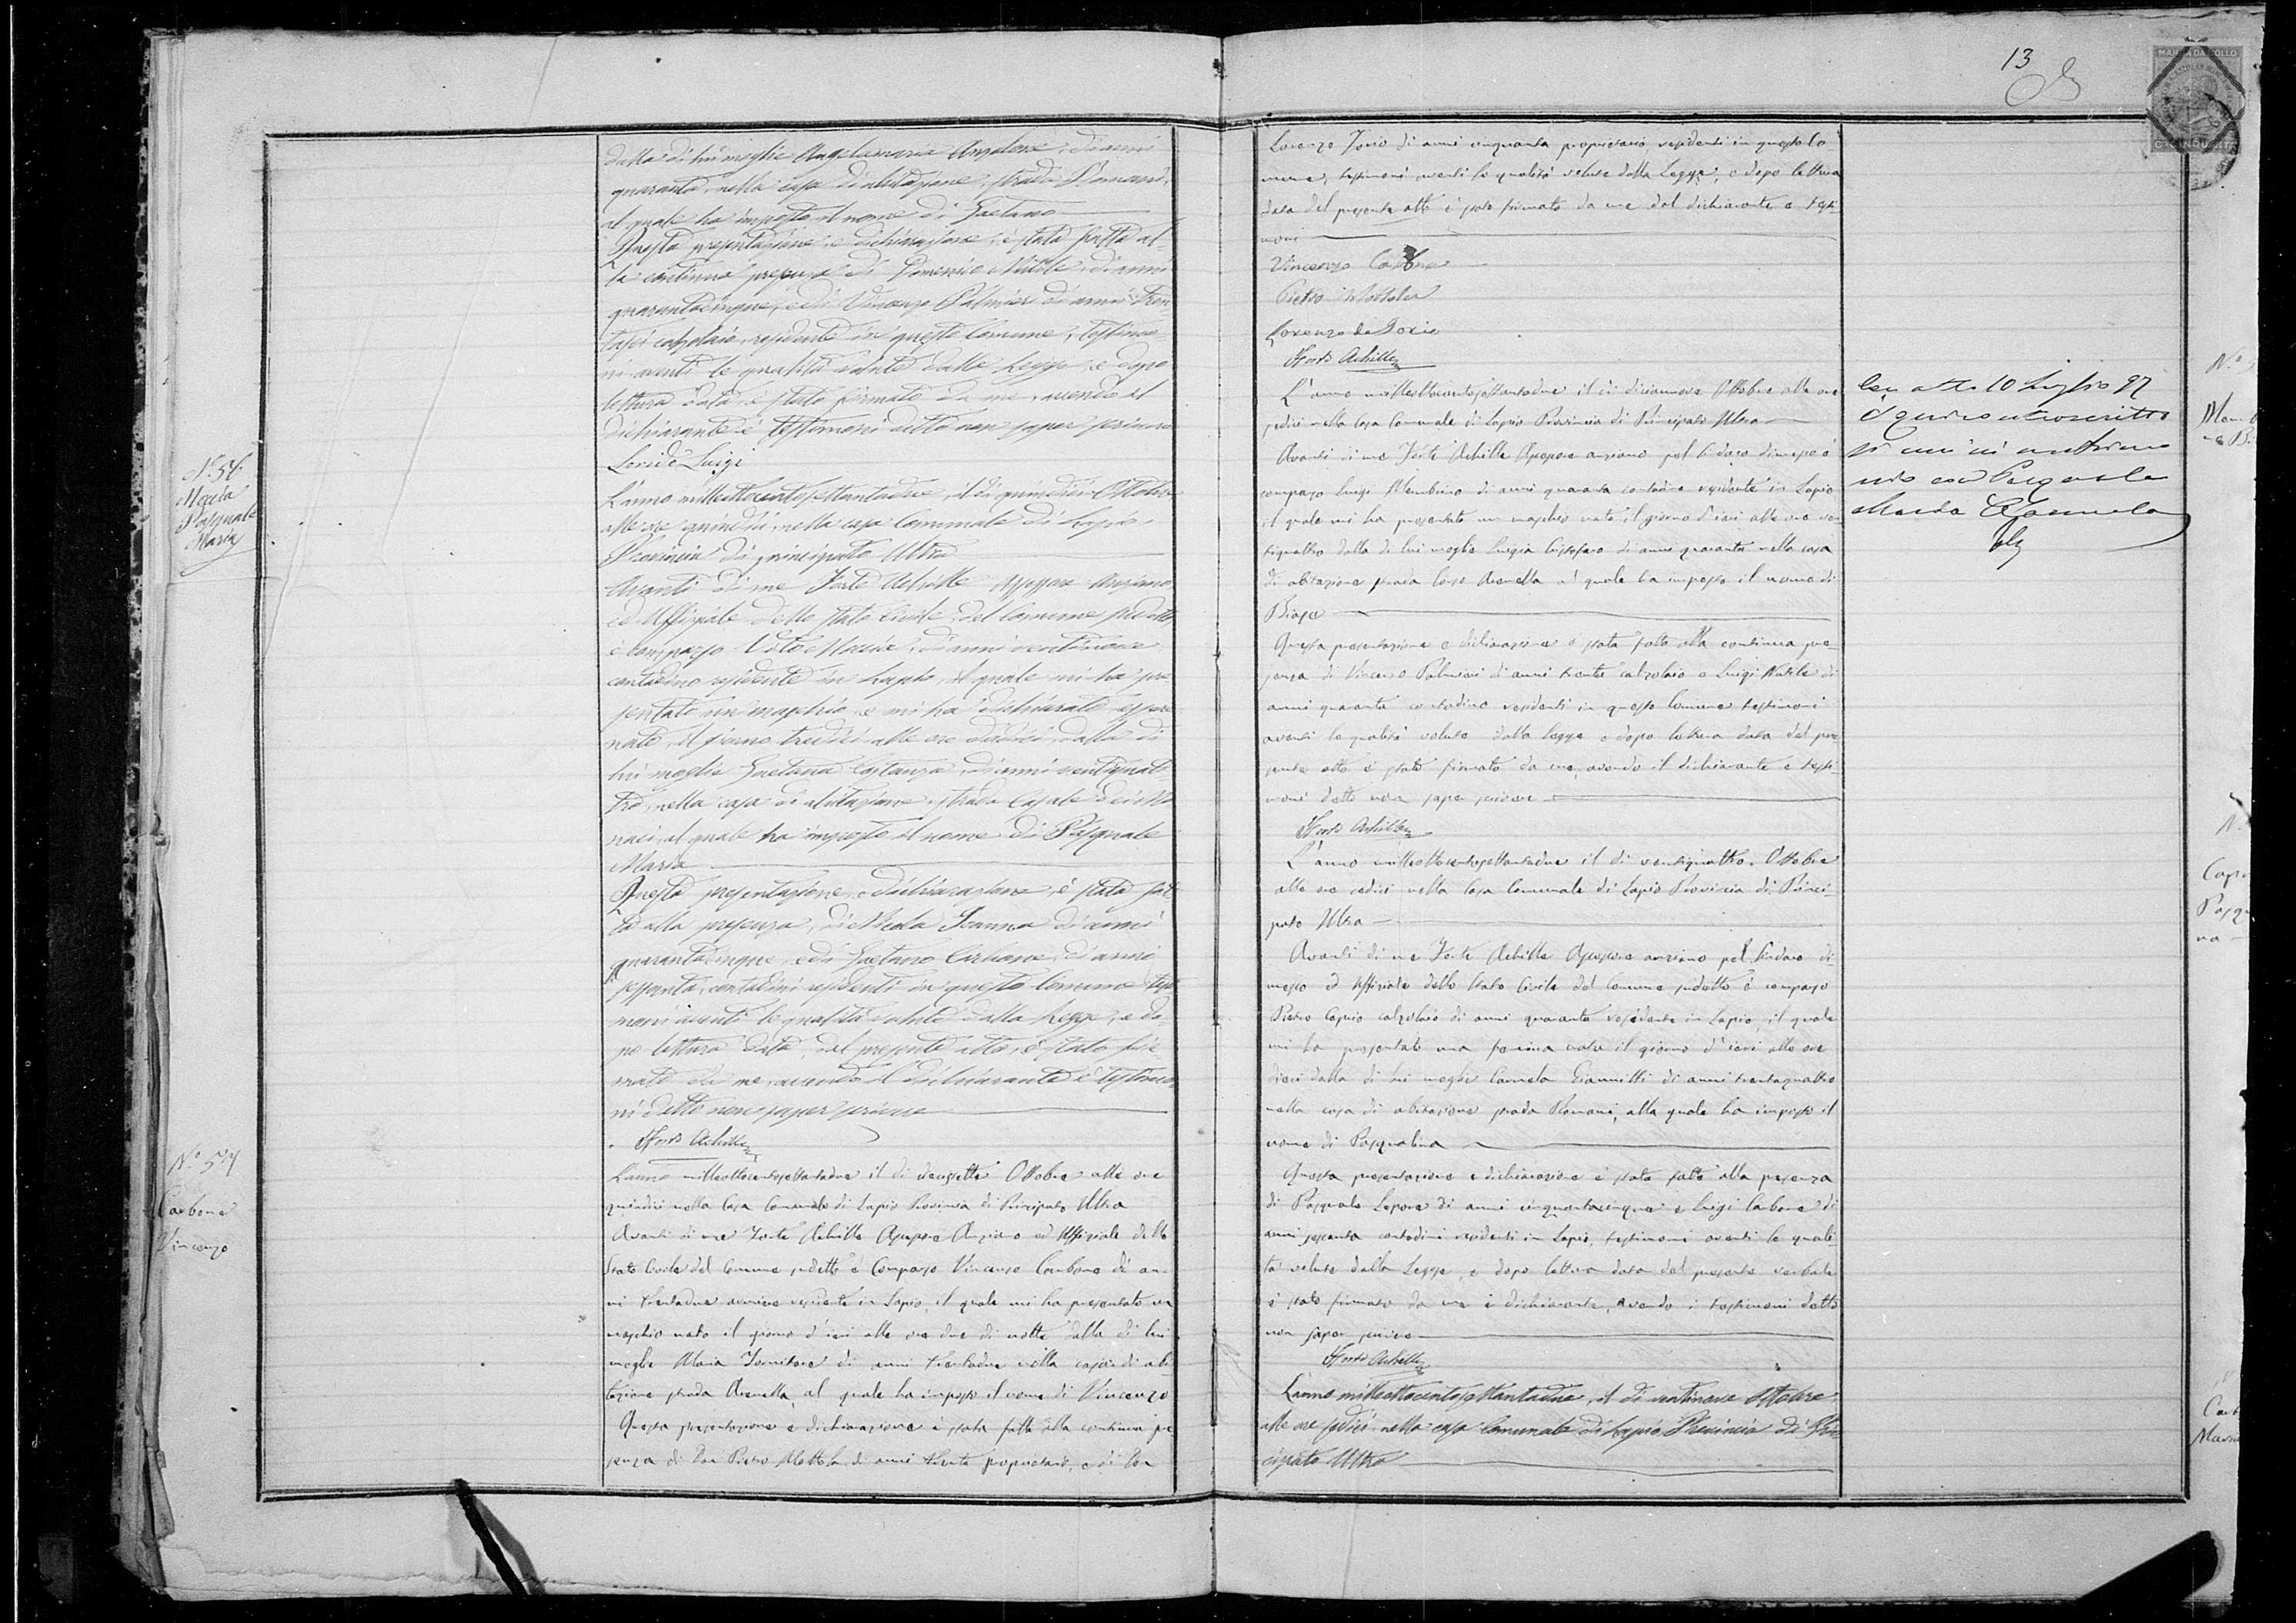 dalla di lui moglie Angelamaria Anzalone, di anni
quaranta, nella casa d'abitazione, strada Romani,
al quale ha imposto il nome di Gaetano
Questa presentazione e dichiarazione, è stata fatta al-
la continua presenza di Domenico Nitile, di anni
quarantacinque, e di Vincenzo Palmieri di anni tren
tasei calzolaio, residenti in questo Comune, testimo
ni aventi le qualità volute dalla Legge, e dopo
lettura data, è stato firmato da me, avendo il
dichiarante e testimoni detto non saper scrivere
Luigi
N° 56
Pasquale
Maria
L'anno milleottocentosettantadue, il dì quindici Ottobre
alle ore quindici, nella casa Comunale di Lapio,
Provincia di Principato Ultra
Avanti di me Forte Achille Assessore Anziano
ed Uffiziale dello Stato Civile del Comune suddetto,
è comparso Vito di anni ventinove
contadino residente in Lapio, il quale mi ha pre
sentato un maschio, e mi ha dichiarato essere
nato, il giorno tredici alle ore dodici, dalla di
lui moglie Gaetana Costanza, di anni ventiquat-
tro, nella casa di abitazione, strada Casale
al quale ha imposto il nome di Pasquale
Maria
Questa presentazione, e dichiarazione, è stata fat-
ta alla presenza, di Nicola Ioanna di anni
quarantacinque, e di Gaetano Carbone, di anni
sessanta, contadini residenti in questo Comune testi
moni aventi le qualità volute dalla Legge, e do-
po lettura data, del presente atto, è stato fir-
mato da me, avendo il dichiarante e testimo
ni detto non saper scrivere
Forte Achille
N° 57
Carbone
Vincenzo
L'anno milleottocentosettantadue il dì diecisette Ottobre alle ore
quindici nella Casa Comunale di Lapio Provincia di Principato Ultra
Avanti di me Forte Achille Assessore Anziano ed Uffiziale dello
Stato Civile del Comune sudetto è Comparso Vincenzo Carbone di an-
ni trentadue residente in Lapio, il quale mi ha presentato un
maschio nato il giorno d'ieri alle ore due di notte dalla di lui
moglie Maria di anni trentadue nella casa di abi
tazione strada Arenella, al quale ha imposto il nome di Vincenzo
Questa presentazione e dichiarazione è stata fatta alla continua pre
senza di Don Pietro Mottola di anni trenta proprietario, e di Don
13
Lorenzo Iorio di anni cinquanta proprietario residenti in questo Co
mune, testimoni aventi le qualità volute dalla Legge, e dopo lettura
data del presente atto è stato firmato da me dal dichiarante e testi-
moni
Vincenzo Carbone
Pietro Mottola
Lorenzo de Iorio
Forte Achille
L'anno milleottocentosettantadue il dì diciannove Ottobre alle ore
sedici nella Casa Comunale di Lapio Provincia di Principato Ultra
Avanti di me Forte Achille Assessore anziano pel Sindaco dimesso è
comparso Luigi Membrino di anni quaranta contadino residente in Lapio
il quale mi ha presentato un maschio nato il giorno d'ieri alle ore ven
tiquattro dalla di lui moglie Luigia Cristofaro di anni quaranta nella casa
di abitazione strada Arenella al quale ha imposto il nome di
Biagio
Questa presentazione e dichiarazione è stata fatta alla continua pre
senza di Vincenzo Palmieri di anni trenta calzolaio e Luigi Nitile di
anni quaranta contadino residenti in questo Comune testimoni
aventi le qualità volute dalla legge e dopo lettura data del pre
sente atto è stato firmato da me, avendo il dichiarante e testi-
moni detto non saper scrivere
Forte Achille
L'anno milleottocentosettantadue il dì ventiquattro Ottobre
alle ore sedici nella Casa Comunale di Lapio Provincia di Princi-
pato Ultra
Avanti di me Forte Achille Assessore anziano pel Sindaco di-
messo ed Uffiziale dello Stato Civile del Comune sudetto è comparso
Pietro Caprio calzolaio di anni quaranta residente in Lapio, il quale
mi ha presentato una femina nata il giorno d'ieri alle ore
dieci dalla di lui moglie Carmela Giannitti di anni trentaquattro
nella casa di abitazione strada Romani, alla quale ha imposto il
nome di Pasqualina
Questa presentazione e dichiarazione è stata fatta alla presenza
di Pasquale Lepore di anni cinquantacinque e Luigi Carbone di
anni sessanta contadini residenti in Lapio, testimoni aventi le quali-
tà volute dalla Legge, e dopo lettura data del presente verbale
è stato firmato da me e dichiarante, avendo i testimoni detto
non saper scrivere
Forte Achille
L'anno milleottocentosettantadue, il dì ventinove Ottobre
alle ore sedici nella casa Comunale di Lapio Provincia di Prin
cipato Ultra
Con atto 10 Luglio 97
si unì in matrimo
nio con
MARCA DA BOLLO
N°
Capr
Pasq
na
Carb
Maria